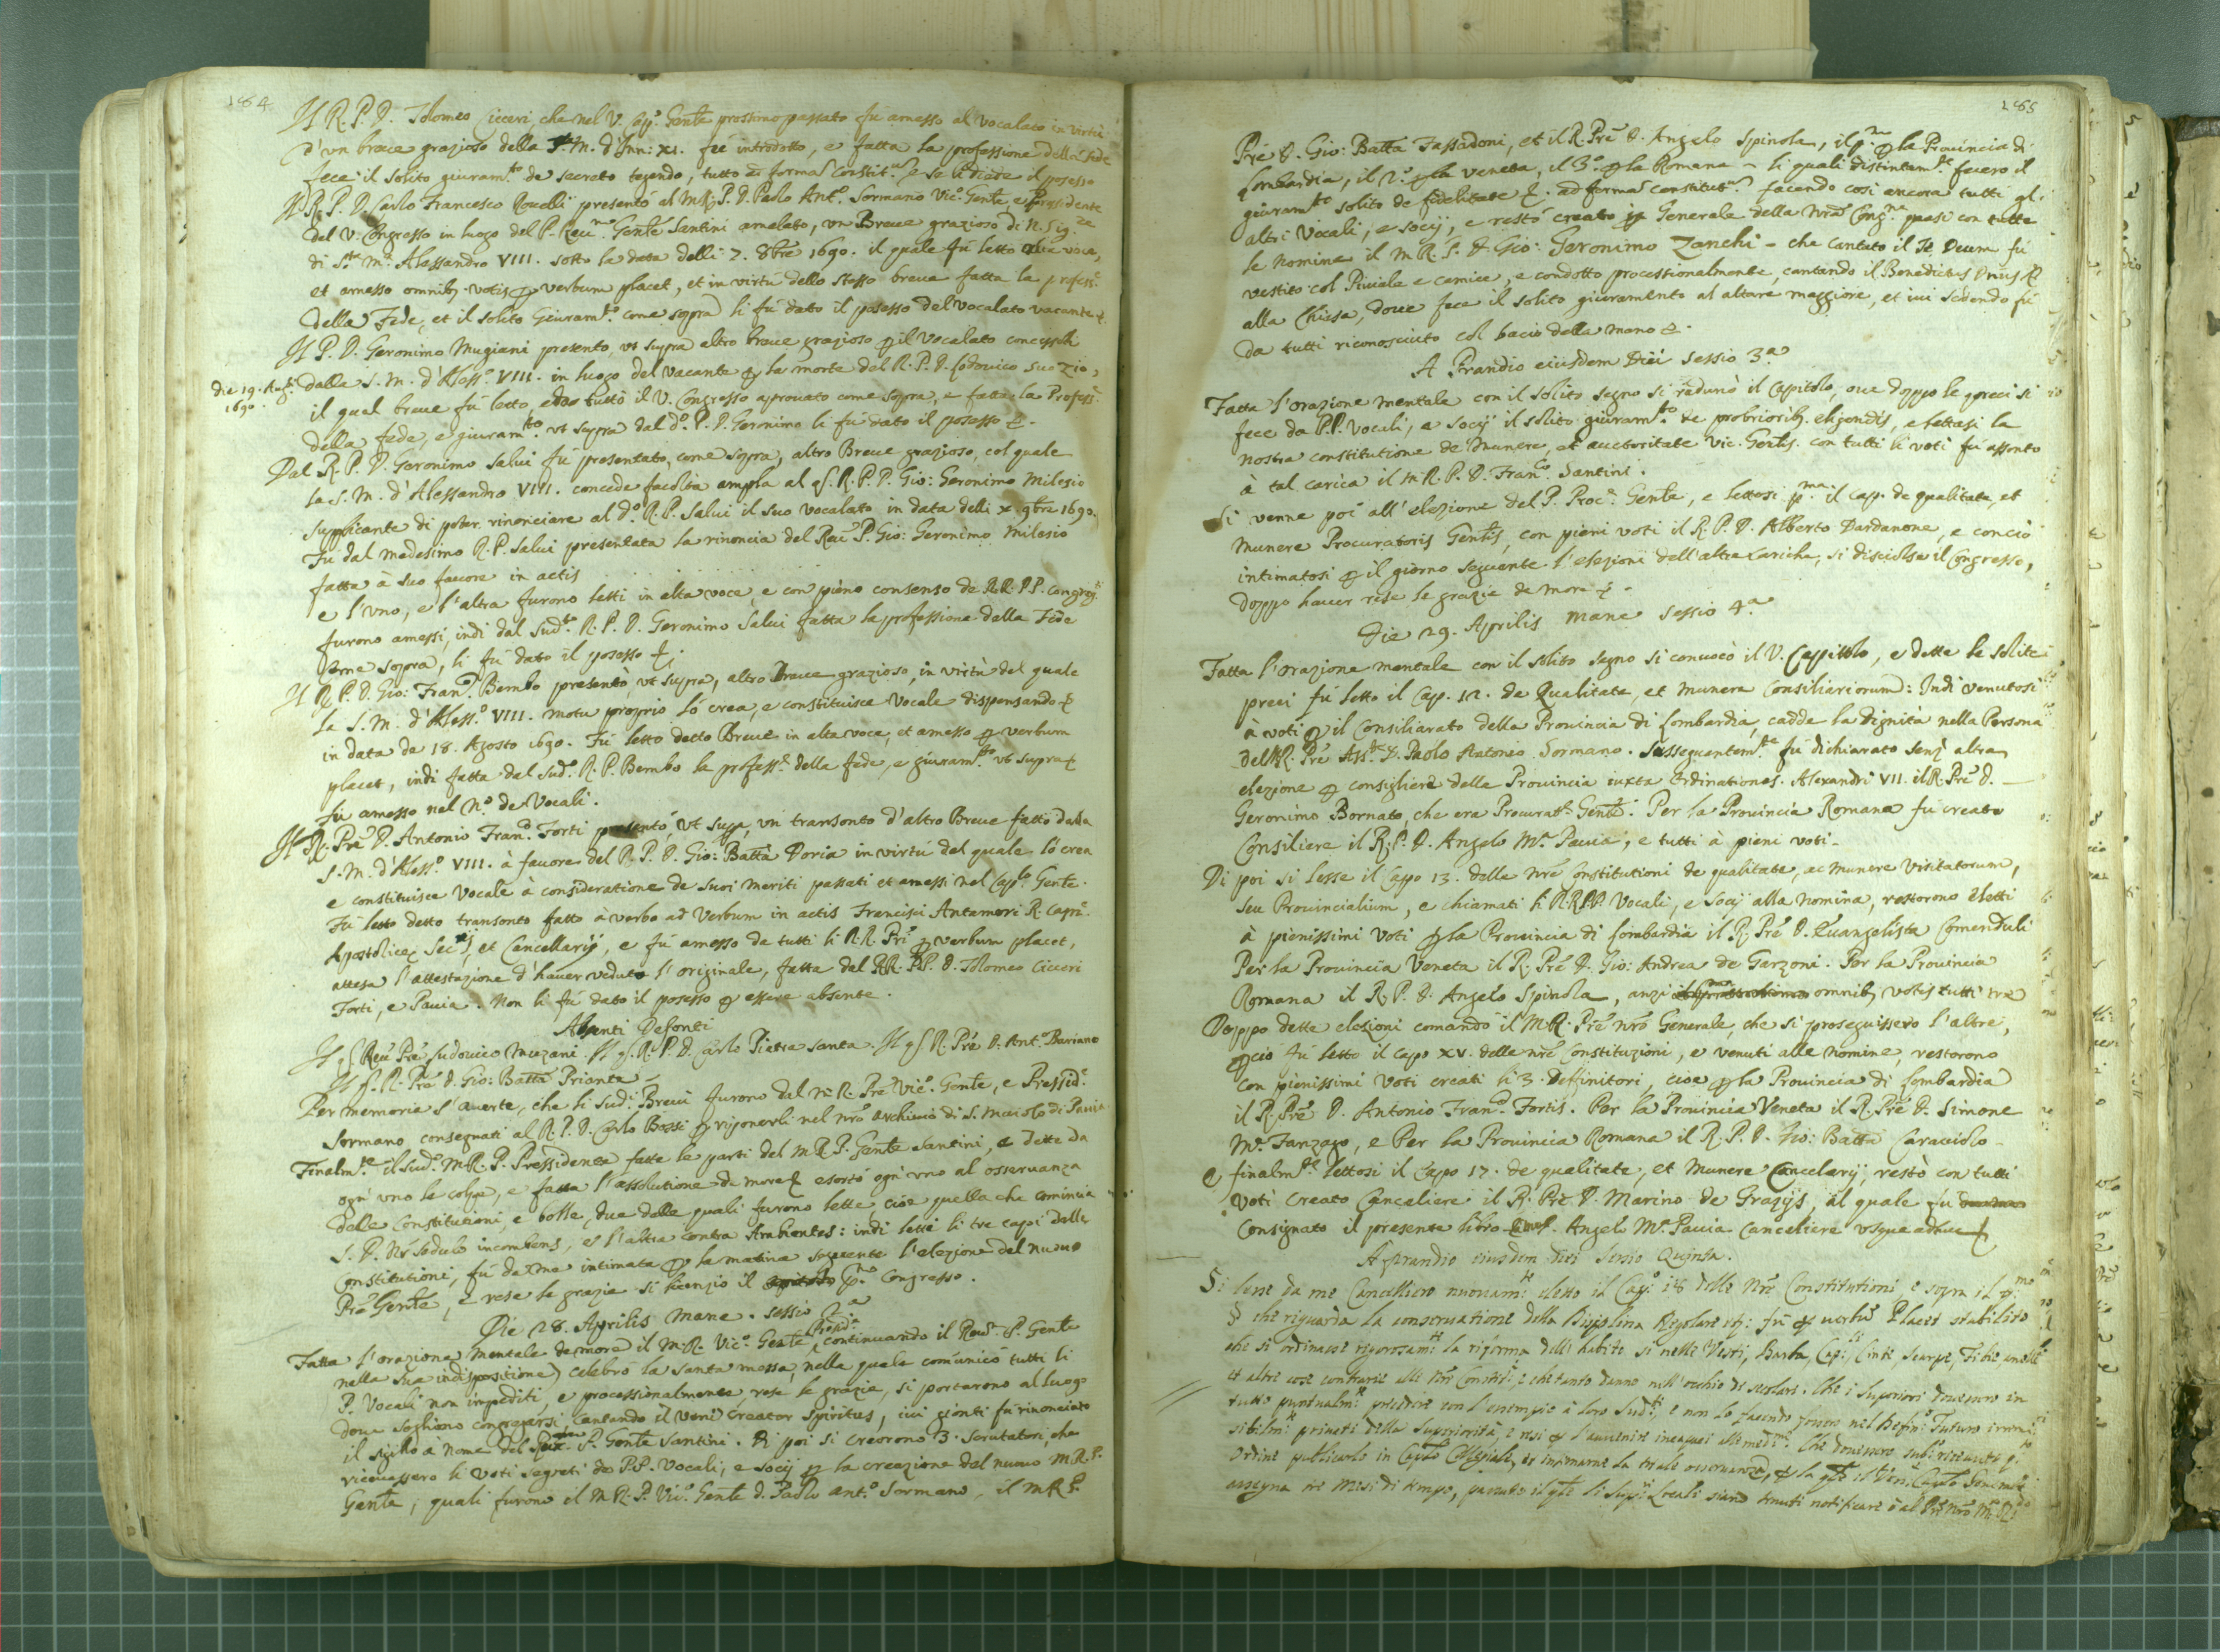 184
Il R. P. D. Tolomeo Cicceri, che nel V. Cap.º Gen̄te prossimo passato fù amesso al vocalato in virtù
d'un breve grazioso della S.ta M. d'Inn: XI. fù introdotto, e fatta la professione della fede
fece il solito giuram.to de secreto tegendo, tutto ad formaʃ Constit.ˢ e se li diede il posesso
Il R. P. D. Carlo Francesco Rovelli presentò al M.R. P. D. Paolo Ant.º Sormano Vic.º Gen̄te, e Presidente
del V. Congresso in luogo del P. Reu.mo Gen̄te Santini amalato, un Breue grazioso di N. Sig.re
di S.ta M.ª Alessandro VIII. sotto la data delli 7. 8bre 1690. il quale fù letto alta voce,
et amesso omnibꝫ votis ꝑ verbum placet, et in virtù dello stesso breue fatta la profess.ᵉ
della Fede, et il solito Giuram.to come sopra li fù dato il posesso del vocalato vacante &.
Il P. D. Geronimo Mugiani presentò, vt supra altro breue grazioso ꝑ il Vocalato concessoli
die 19. Aug.ti 1690. dalla S. M. d'Aless.º VIII. in luogo del vacante ꝑ la morte del R. P. D. Lodovico suo zio,
il qual breue fù letto, e da tutto il V. Congresso aprouato come sopra, e fatta la Profess.ᵉ
della fede, e giuram.to vt supra dal d.º P. D. Geronimo li fù dato il posesso &.
Dal R. P. D. Geronimo Salui fù presentato, come sopra, altro Breue grazioso, col quale
la S. M. d'Alessandro VIII. concede facoltà ampla al qʃ. R. P. D. Gio: Geronimo Milesio
supplicante di poter rinonciare al d.º R. P. Salui il suo vocalato in data delli X. 9bre 1690.
Fù dal medesimo R. P. Salui presentata la rinoncia del Reu.ᵈ P. Gio: Geronimo Milesio
fatta à suo fauore in actis . . . . .
e l'uno, e l'altra furono letti in alta voce, e con pieno consenso de RR. PP. Congreg.ti
furono amessi, indi dal Sud.to R. P. D. Geronimo Salui fatta la professione della Fede
come sopra, li fù dato il posesso &.
Il R. P. D. Gio: Fran.co Bembo presentò, vt supra, altro Breue grazioso, in virtù del quale
la S. M. d'Aless.º VIII. motu proprio lo crea, e constituisce Vocale dispensando &
in data de 18. Agosto 1690. Fù letto detto Breue in alta voce, et amesso ꝑ verbum
placet, indi fatta dal Sud.º R. P. Bembo la profess.ᵉ della fede, e giuram.to vt supra &
fù amesso nel N.º de Vocali.
Il R. Prē D. Antonio Fran.co Forti presentò, vt supp.ª, un transonto d'altro Breue fatto dalla
S. M. d'Aless.º VIII. à fauore del R. P. D. Gio: Battā Doria in virtù del quale lo crea
e constituisce Vocale à consideratione de suoi meriti passati et amessi nel Cap.lo Gen̄te.
Fù letto detto transonto fatto à verbo ad Verbum in actis Francisci Antamori R. Capr̄e.
Apostolicę Sec.rij, et Cancellarij, e fù amesso da tutti li R.R. Pri ꝑ verbum placet,
attesa l'attestazione d'hauer veduto l'originale, fatta dal RR. PP. D. Tolomeo Cicceri
Forti, e Pauia. Non li fù dato il posesso ꝑ essere absente.
Absenti Defonti
Il qʃ Reu Prē Ludouico Mugiani. Il qʃ. R. P. D. Carlo Pietra Santa. Il qʃ R. Prē D. Ant.º Bariano
Il qʃ. R. Prē D. Gio: Battā Prianta
Per memoria s'auerte, che li Sud.ti Breui furono dal M.R. Prē Vic.º Gen̄te, e Pressid.ᵉ
Sormano consegnati al R. P. D. Carlo Bossi ꝑ riponerli nel nrō archiuio di S. Maiolo di Pauia
Finalm.te il Sud.º M.R. P. Pressidente fatte le parti del M.R.P. Gen̄te Santini, e dette da
ogn'uno le colpe, e fatta l'assolutione de more & esortò ogn'uno al osseruanza
delle Constitutioni, e bolle, due delle quali furono lette, cioè quella che comincia
S. P. Nr̄ sedulo incombens, e l'altra contra Ambientes: indi letti li tre capi delle
Constitutioni, fù da me intimata ꝑ la matina seguente l'elezione del nuouo
Prē Gen̄te, e rese le grazie si licenziò il p.mo Congresso.
Die 28. Aprilis Mane. sessio 2.ª
Fatta l'orazione mentale de more il M.R. Vic.º Gen̄te Presid.ᵉ, (continuando il Reu.mo P. Gen̄te
nella sua indispositione) celebrò la santa messa, nella quale comunicò tutti li
P. Vocali non impediti, e processionalmente, rese le grazie, si portarono al luogo
doue sogliono congregarsi cantando il Veni Creator Spiritus, iui gionti fù rinonciato
il sigillo a nome del P. Gen̄te Santini. Di poi si creorono 3. scrutatori, che
riceuessero li Voti segreti de P.P. Vocali, e socij ꝑ la creazione del nuouo M.R.P.
Gen̄te, quali furono il M.R. P. Vic.º Gen̄te D. Paolo Ant.º Sormano, il M.R.P.
185
Prē D. Gio: Battā Fassadoni, et il R. Prē D. Angelo Spinola, il p.mo ꝑ la Prouincia di
Lombardia, il 2.º ꝑ la veneta, il 3.º ꝑ la Romana - li quali distintam.te fecero il
giuram.to solito de fidelitate &. ad formaʃ constitut.ˢ facendo così ancora tutti gl.
altri Vocali, e socij, e restò creato in Generale della nrā Cong.ne quasi con tutte
le nomine il M.R. P. D Gio: Geronimo Zanchi - che cantato il Te Deum fù
vestito col Piuiale e camice, e condotto processionalmente, cantando il Benedictus Dn̄us &
alla Chiesa, doue fece il solito giuramento al altare maggiore, et iui sedendo fù
da tutti riconosciuto col bacio della mano &.
A Prandio eiusdem Diei sessio 3.ª
Fatta l'orazione mentale con il solito segno si radunò il Capitolo, oue doppo le preci si
fece da P.P. Vocali, e Socij il solito giuram.to de probrioribꝫ eligendis, e lettasi la
nostra constitutione de Munere, et auctoritate Vic. Gen̄tis. con tutti li voti fù assonto
à tal carica il M.R. P. D. Fran.co Santini.
Si venne poi all'elezione del P. Proc.ᵉ Gen̄te, e lettosi p.ma il Cap. de qualitate, et
munere Procuratoris Gen̄tis, con pieni voti il R. P. D. Alberto Dardanone, e conciò
intimatosi ꝑ il giorno seguente l'elezioni dell'altre cariche, si disciolse il Congresso,
doppo hauer rese le grazie de more &.
Die 29. Aprilis mane sessio 4.ª
Fatta l'orazione mentale con il solito segno si conuocò il V. Capittolo, e dette le solite
preci fù letto il Cap. 12. de Qualitate, et munere Consiliariorum: Indi venutosi
à voti ꝑ il Consiliarato della Prouincia di Lombardia, cadde la dignità nella Persona
del M.R. Prē Ass.te D. Paolo Antonio Sormano. Susseguentem.te fù dichiarato senz'altra
elezione ꝑ consigliere della Prouincia iuxta Ordinationes. Alexandri VII. il R. Prē D. —
Geronimo Bornato, che era Procurat.ʳ Gen̄te. Per la Prouincia Romana fù creato
Consiliere il R. P. D. Angelo M.ª Pauia, e tutti à pieni voti.
Di poi si lesse il Capo 13. delle nrē Constitutioni de qualitate, ac munere Visitatorum,
seu Prouincialium, e chiamati li R.R.P.P. Vocali, e Socij alla nomina, restorono eletti
à pienissimi voti ꝑ la Prouincia di Lombardia il R. Prē D. Euangelista Comenduli
Per la Prouincia Veneta il R. Prē D. Gio: Andrea de Garzoni. Per la Prouincia
Romana il R. P. D. Angelo Spinola, anzi omnibꝫ votis tutti tre
Doppo dette elezioni comandò il M.R. Prē nrō Generale, che si proseguissero l'altre,
ꝑ ciò fù letto il capo XV. delle nrē Constituzioni, e venuti alle nomine, restorono
con pienissimi voti creati li 3. Deffinitori, cioè ꝑ la Prouincia di Lombardia
il R. Prē D. Antonio Fran.co Fortis. Per la Prouincia Veneta il R. Prē D. Simone
M.ª Fanzago, e Per la Prouincia Romana il R. P. D. Gio: Battā Caracciolo
e finalm.te lettosi il Capo 17. de qualitate, et Munere Cancelarij, restò con tutti
voti creato Canceliere il R. Prē D. Marino de Grazijs, al quale fù
Consignato il presente libro Angelo M.ª Pauia Canceliere vsque adhuc &
A prandio eiusdem diei Sessio Quinta.
Si lesse da me Cancelliero nuouam.te eletto il Cap.º 18 delle Nrē Constitutioni, e sopra il p.mo
§ che riguarda la conseruatione della Disciplina Regolare &: fù ꝑ uerbū Placet stabilito
che si ordinasse rigorosam.te la riforma dell'habito si nelle Vesti, Barba, Cap.lli, Cinte, Scarpe, Fibie, anelli
et altre cose contrarie alle nrē Constit.ni e che tanto danno nell'occhio di secolari. Che i Superiori douessero in
tutto puntualm.te precedere con l'esempio à loro Sudd.ti, e non lo facendo fossero nel Defin.º Futuro irremi-
sibilm.te priuati della Superiorità, e resi ꝑ l'auuenire incapaci alle med.me. Che douessero subito riceuuto q.to
Ordine publicarlo in Cap.lo Collegiale, et intimarne la totale osseruanza, ꝑ la qle il Ven. Cap.lo Generale
assegna tre Mesi di tempo, passato il qle li Sup.ri Locali siano tenuti notificare ò al Prē Nrō M.R.